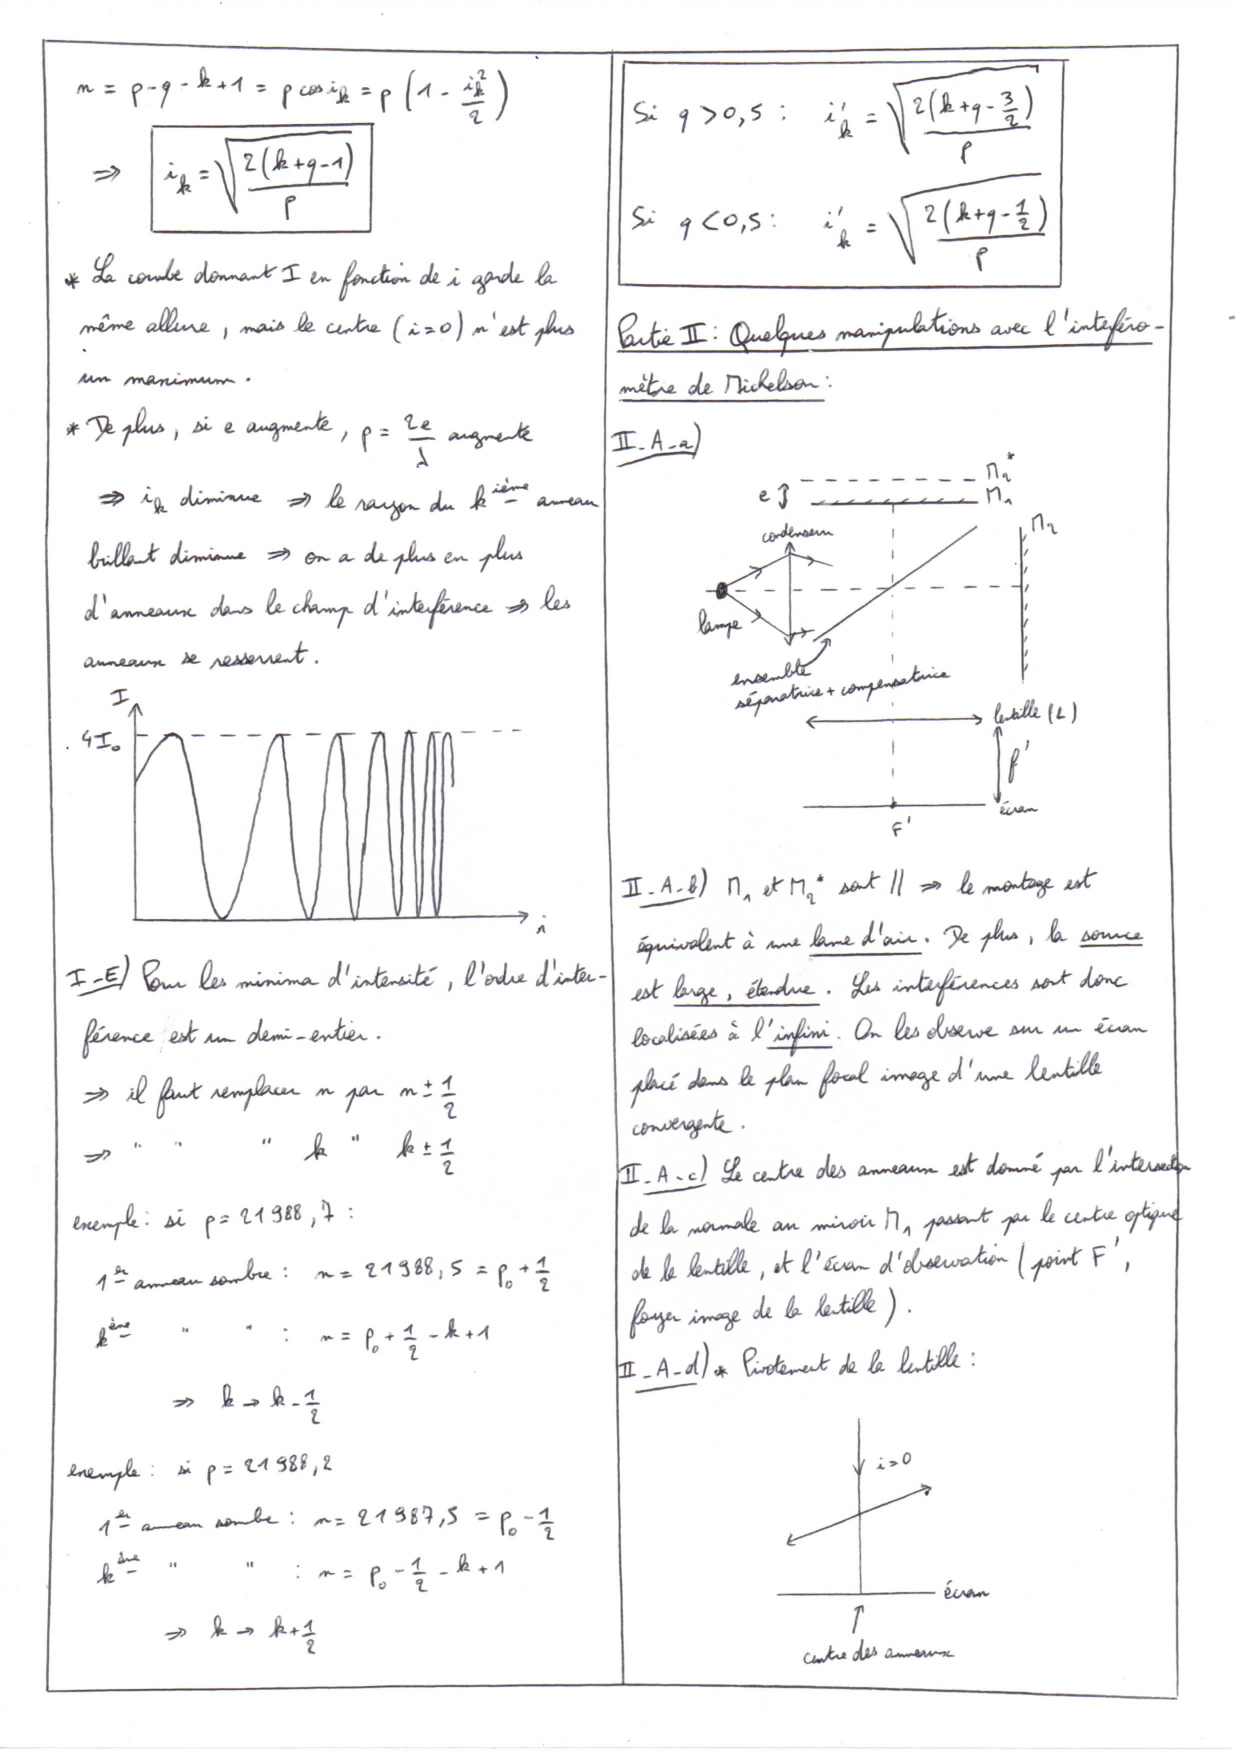 n = p - q - k + 1 = p cos i_k = p (1 - i_k²/2)
⇒ i_k = √(2(k+q-1)/p)
* La courbe donnant I en fonction de i garde la
même allure, mais le centre (i=0) n'est plus
un maximum.
* De plus, si e augmente, p = 2e/λ augmente
⇒ i_k diminue ⇒ le rayon du k ième anneau
brillant diminue ⇒ on a de plus en plus
d'anneaux dans le champ d'interférence ⇒ les
anneaux se resserrent.
I
4I₀
i
I-E) Pour les minima d'intensité, l'ordre d'inter-
férence est un demi-entier.
⇒ il faut remplacer n par n ± 1/2
⇒ " " " k " k ± 1/2
exemple : si p = 21988,7 :
1er anneau sombre : n = 21988,5 = p₀ + 1/2
k ème " " : n = p₀ + 1/2 - k + 1
⇒ k → k - 1/2
exemple : si p = 21988,2
1er anneau sombre : n = 21987,5 = p₀ - 1/2
k ème " " : n = p₀ - 1/2 - k + 1
⇒ k → k + 1/2
Si q > 0,5 : i'_k = √(2(k+q-3/2)/p)
Si q < 0,5 : i'_k = √(2(k+q-1/2)/p)
Partie II : Quelques manipulations avec l'interféro-
mètre de Michelson :
II-A-a)
M₂*
e
M₁
condenseur
M₂
lampe
ensemble
séparatrice + compensatrice
lentille (L)
f'
écran
F'
II-A-b) M₁ et M₂* sont // ⇒ le montage est
équivalent à une lame d'air. De plus, la source
est large, étendue. Les interférences sont donc
localisées à l'infini. On les observe sur un écran
placé dans le plan focal image d'une lentille
convergente.
II-A-c) Le centre des anneaux est donné par l'intersection
de la normale au miroir M₁ passant par le centre optique
de la lentille, et l'écran d'observation (point F',
foyer image de la lentille).
II-A-d) * Pivotement de la lentille :
i=0
écran
centre des anneaux